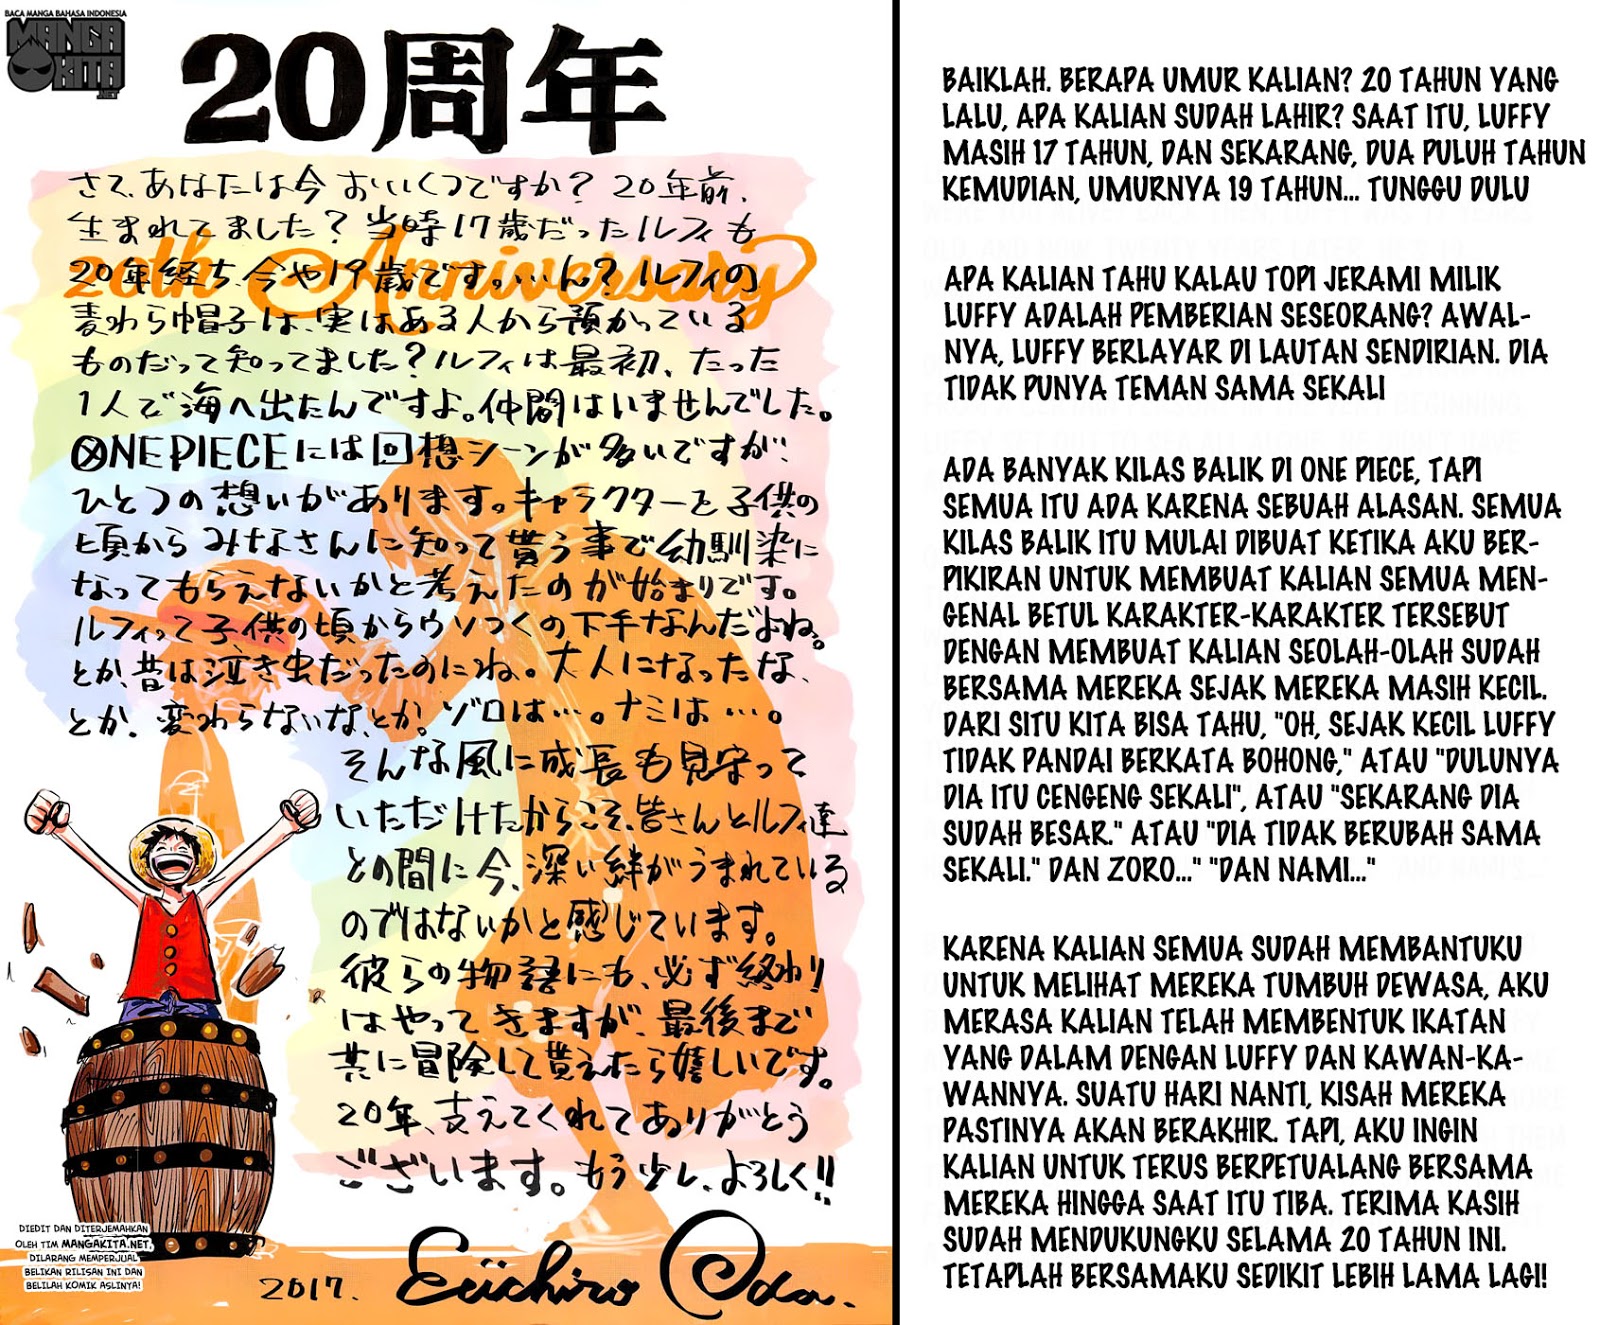 BACA MANGA BAHASA INDONESIA
MANGA
KITA
.NET
20周年
20th Anniversary
さて、あなたは今 おいくつですか? 20年前、
生まれてました? 当時17歳だったルフィも
20年経ち、今や19歳です。…ん? ルフィの
麦わら帽子は、実はある人から預かっている
ものだって知ってました? ルフィは最初、たった
1人で海へ出たんですよ。仲間はいませんでした。
ONE PIECEには回想シーンが多いですが、
ひとつの想いがあります。キャラクターを子供の
頃からみなさんに知って貰う事で幼馴染に
なってもらえないかと考えたのが始まりです。
ルフィって子供の頃からウソつくの下手なんだよね。
とか、昔は泣き虫だったのにね。大人になったな、
とか、変わらないな、とか。ゾロは…。ナミは…。
そんな風に成長も見守って
いただけたからこそ、皆さんとルフィ達
との間に今、深い絆がうまれている
のではないかと感じています。
彼らの物語にも、必ず終わり
はやってきますが、最後まで
共に冒険して貰えたら嬉しいです。
20年、支えてくれてありがとう
ございます。もう少し、よろしく!!
2017. Eiichiro Oda.
DIEDIT DAN DITERJEMAHKAN
OLEH TIM MANGAKITA.NET,
DILARANG MEMPERJUAL
BELIKAN RILISAN INI DAN
BELILAH KOMIK ASLINYA!
BAIKLAH. BERAPA UMUR KALIAN? 20 TAHUN YANG
LALU, APA KALIAN SUDAH LAHIR? SAAT ITU, LUFFY
MASIH 17 TAHUN, DAN SEKARANG, DUA PULUH TAHUN
KEMUDIAN, UMURNYA 19 TAHUN... TUNGGU DULU
APA KALIAN TAHU KALAU TOPI JERAMI MILIK
LUFFY ADALAH PEMBERIAN SESEORANG? AWAL-
NYA, LUFFY BERLAYAR DI LAUTAN SENDIRIAN. DIA
TIDAK PUNYA TEMAN SAMA SEKALI
ADA BANYAK KILAS BALIK DI ONE PIECE, TAPI
SEMUA ITU ADA KARENA SEBUAH ALASAN. SEMUA
KILAS BALIK ITU MULAI DIBUAT KETIKA AKU BER-
PIKIRAN UNTUK MEMBUAT KALIAN SEMUA MEN-
GENAL BETUL KARAKTER-KARAKTER TERSEBUT
DENGAN MEMBUAT KALIAN SEOLAH-OLAH SUDAH
BERSAMA MEREKA SEJAK MEREKA MASIH KECIL.
DARI SITU KITA BISA TAHU, "OH, SEJAK KECIL LUFFY
TIDAK PANDAI BERKATA BOHONG," ATAU "DULUNYA
DIA ITU CENGENG SEKALI", ATAU "SEKARANG DIA
SUDAH BESAR." ATAU "DIA TIDAK BERUBAH SAMA
SEKALI." DAN ZORO..." "DAN NAMI..."
KARENA KALIAN SEMUA SUDAH MEMBANTUKU
UNTUK MELIHAT MEREKA TUMBUH DEWASA, AKU
MERASA KALIAN TELAH MEMBENTUK IKATAN
YANG DALAM DENGAN LUFFY DAN KAWAN-KA-
WANNYA. SUATU HARI NANTI, KISAH MEREKA
PASTINYA AKAN BERAKHIR. TAPI, AKU INGIN
KALIAN UNTUK TERUS BERPETUALANG BERSAMA
MEREKA HINGGA SAAT ITU TIBA. TERIMA KASIH
SUDAH MENDUKUNGKU SELAMA 20 TAHUN INI.
TETAPLAH BERSAMAKU SEDIKIT LEBIH LAMA LAGI!